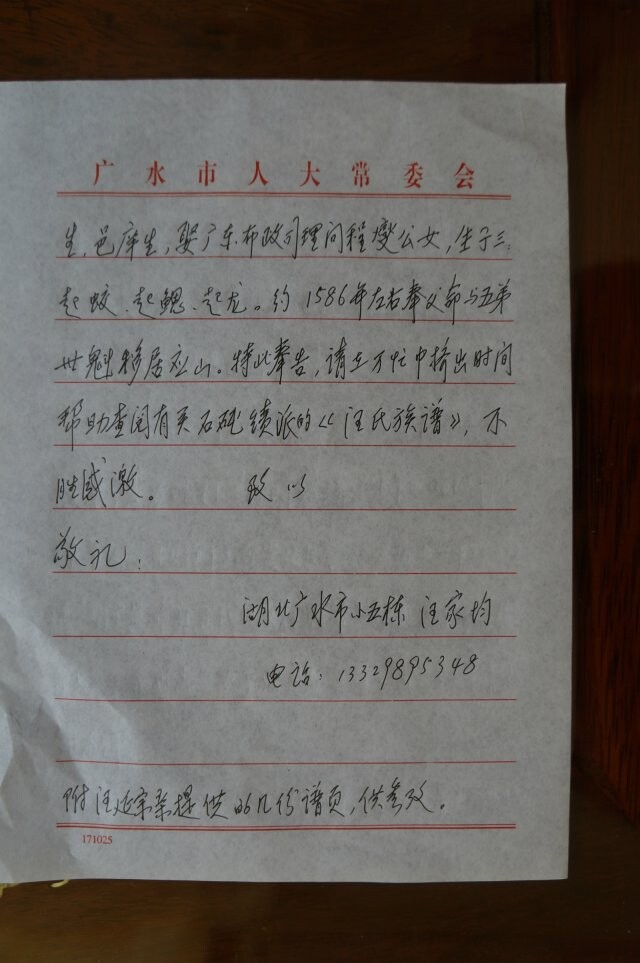 广水市人大常委会
生,邑庠生,娶广东布政司理问程燮公女,生子三:
起蛟、起鳃、起龙。约1586年左右奉父命与五弟
世魁移居应山。特此奉告,请在万忙中挤出时间
帮助查阅有关石砘绩派的《汪氏族谱》,不
胜感激。 致以
敬礼:
湖北广水市小五栋 汪家均
电话:13329895348
附汪延宗亲提供的几份谱页,供参考。
171025